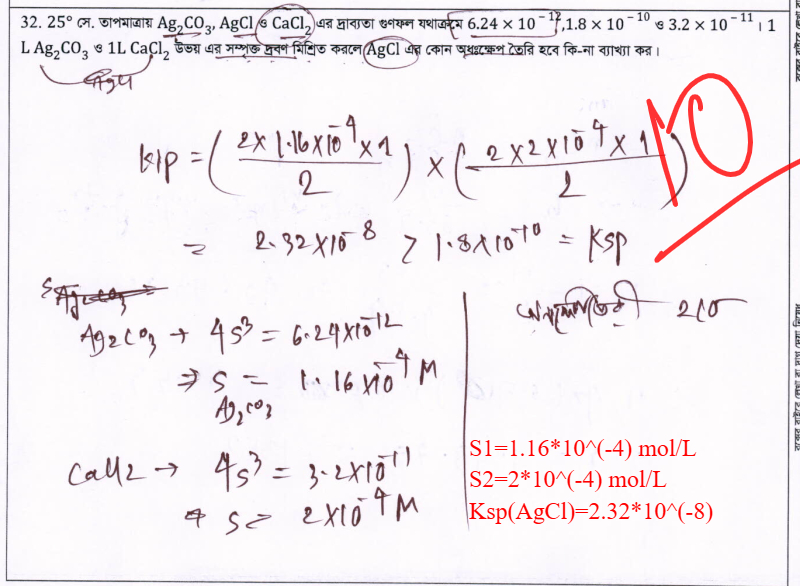 32. 25° সে. তাপমাত্রায় Ag₂CO₃, AgCl ও CaCl₂ এর দ্রাব্যতা গুণফল যথাক্রমে 6.24 × 10⁻¹², 1.8 × 10⁻¹⁰ ও 3.2 × 10⁻¹¹। 1
L Ag₂CO₃ ও 1L CaCl₂ উভয় এর সম্পৃক্ত দ্রবণ মিশ্রিত করলে AgCl এর কোন অধঃক্ষেপ তৈরি হবে কি-না ব্যাখ্যা কর।
Kip = (2×1.16×10⁻⁴×1 / 2) × (2×2×10⁻⁴×1 / 2)
10
= 2.32×10⁻⁸ > 1.8×10⁻¹⁰ = Ksp
Ag₂CO₃ → 4s³ = 6.24×10⁻¹²
⇒ s = 1.16×10⁻⁴ M
Ag₂CO₃
CaCl2 → 4s³ = 3.2×10⁻¹¹
s = 2×10⁻⁴ M
S1=1.16*10^(-4) mol/L
S2=2*10^(-4) mol/L
Ksp(AgCl)=2.32*10^(-8)